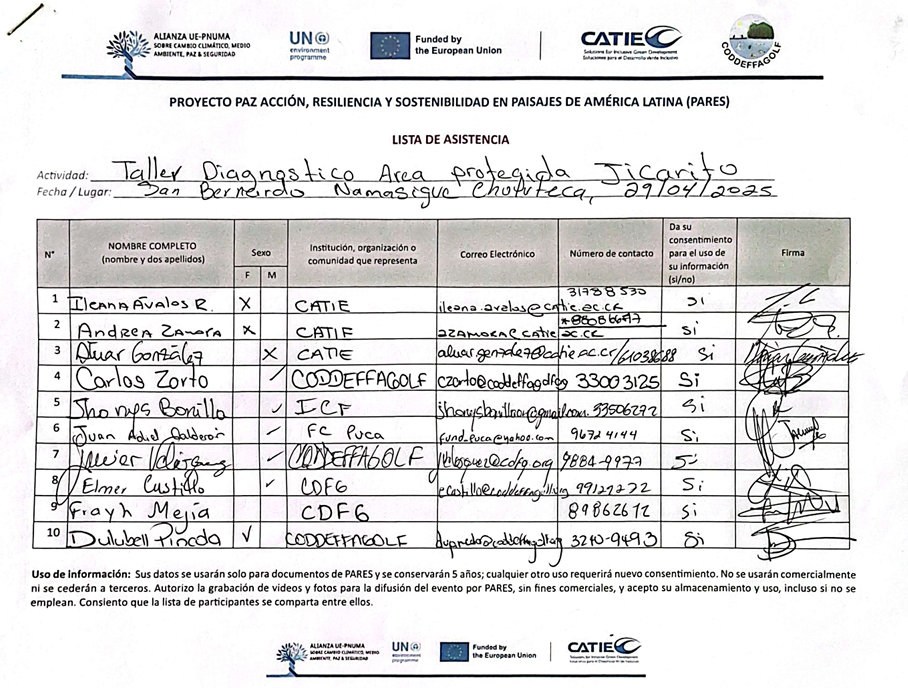 ALIANZA UE-PNUMA
SOBRE CAMBIO CLIMÁTICO, MEDIO
AMBIENTE, PAZ & SEGURIDAD
UN
environment
programme
Funded by
the European Union
CATIE
Solutions for Inclusive Green Development
Soluciones para el Desarrollo Verde Inclusivo
CODDEFFAGOLF
PROYECTO PAZ ACCIÓN, RESILIENCIA Y SOSTENIBILIDAD EN PAISAJES DE AMÉRICA LATINA (PARES)
LISTA DE ASISTENCIA
Actividad: Taller Diagnostico Area protegida Jicarito
Fecha / Lugar: San Bernardo Namasigue Choluteca, 29/04/2025
N° NOMBRE COMPLETO (nombre y dos apellidos) Sexo F M Institución, organización o comunidad que representa Correo Electrónico Número de contacto Da su consentimiento para el uso de su información (si/no) Firma
1 Ileana Avalos R. X CATIE ileana.avalos@catie.ac.cr 31788530 si
2 Andrea Zamora x CATIE azamora@catie.ac.cr si
3 Aluar González X CATIE aluar.gonzalez@catie.ac.cr/61038688 Si
4 Carlos Zorto ✓ CODDEFFAGOLF czorto@coddeffagolf.org 33003125 Si
5 Jhonys Bonilla ✓ ICF 33506272 Si
6 Juan Adiel Calderón ✓ FC Puca fund_puca@yahoo.com 96724144 Si
7 Javier Velásquez ✓ CODDEFFAGOLF jvelasquez@cdfg.org 9884-9977 Si
8 Elmer Custillo ✓ CDFG 99127272 Si
9 Frayh Mejía CDFG 89862612 Si
10 Dulubell Pineda ✓ CODDEFFAGOLF 3240-9493 Si
Uso de información: Sus datos se usarán solo para documentos de PARES y se conservarán 5 años; cualquier otro uso requerirá nuevo consentimiento. No se usarán comercialmente
ni se cederán a terceros. Autorizo la grabación de videos y fotos para la difusión del evento por PARES, sin fines comerciales, y acepto su almacenamiento y uso, incluso si no se
emplean. Consiento que la lista de participantes se comparta entre ellos.
ALIANZA UE-PNUMA
SOBRE CAMBIO CLIMÁTICO, MEDIO
AMBIENTE, PAZ & SEGURIDAD
UN
environment
programme
Funded by
the European Union
CATIE
Solutions for Inclusive Green Development
Soluciones para el Desarrollo Verde Inclusivo